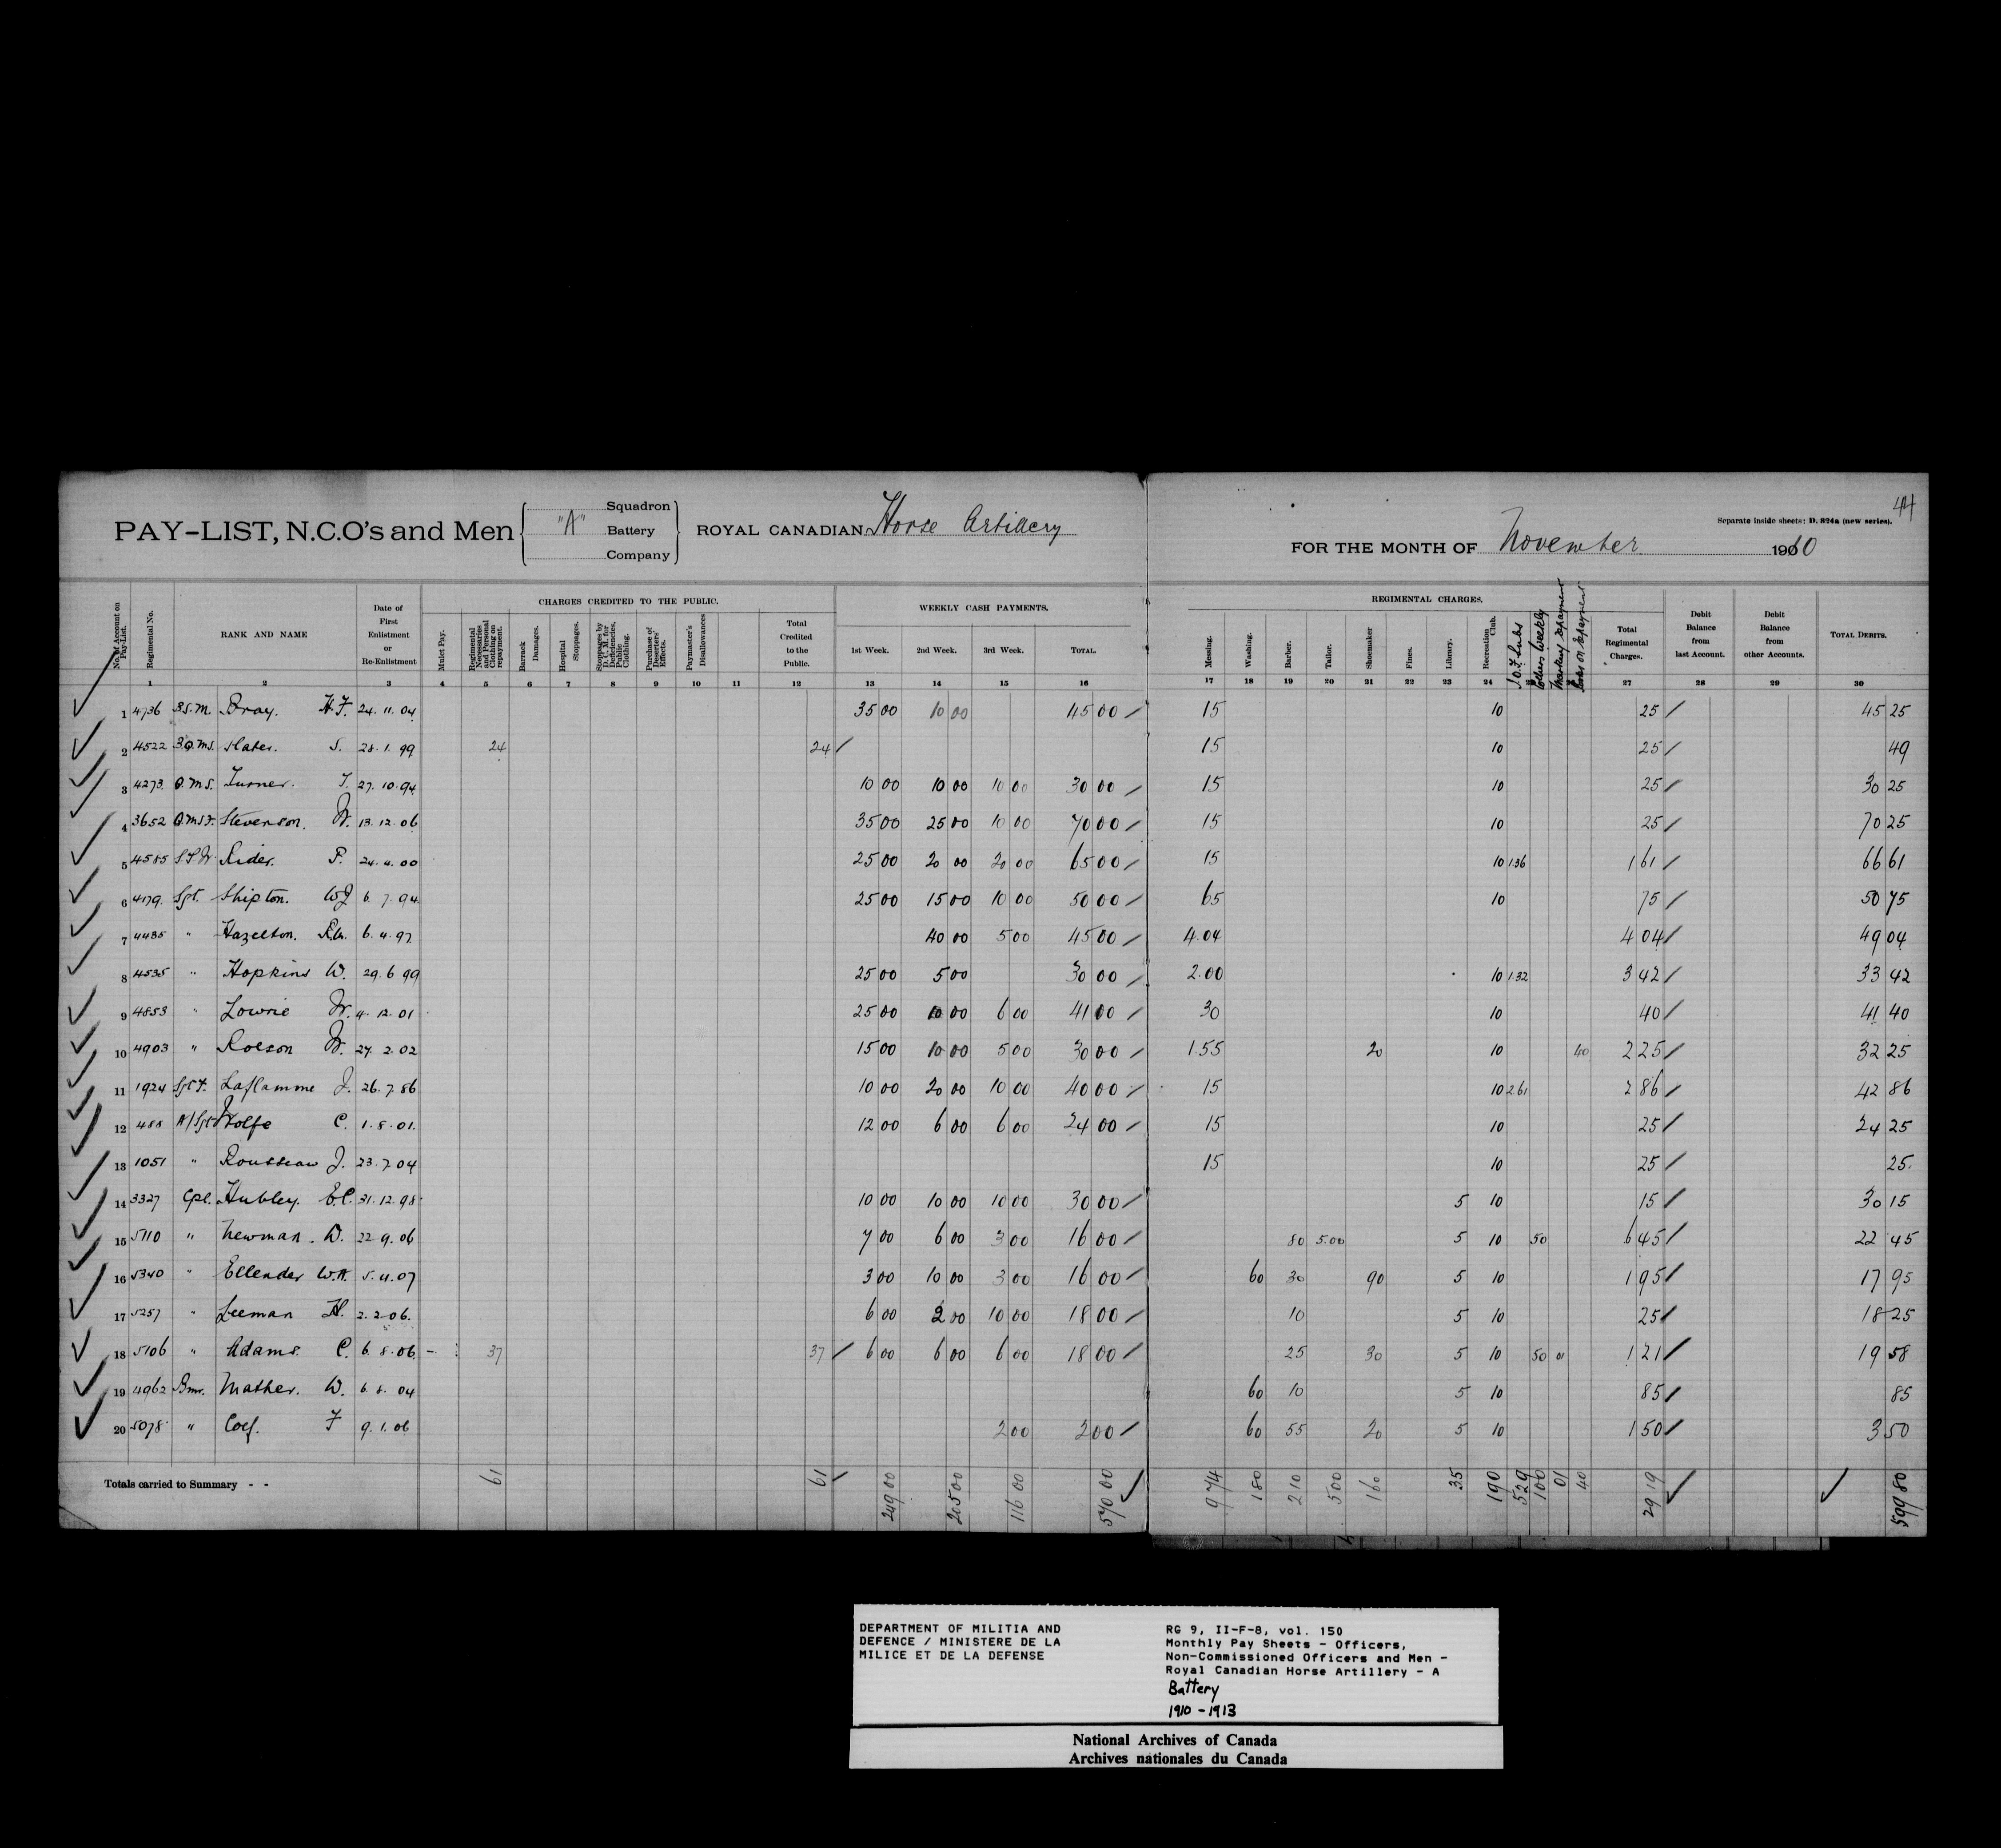 44
Separate inside sheets: D. 824a (new series).
PAY-LIST, N.C.O's and Men "A" Squadron Battery Company ROYAL CANADIAN Horse Artillery FOR THE MONTH OF November 1910
No. of Account on Pay-List. Regimental No. RANK AND NAME Date of First Enlistment or Re-Enlistment CHARGES CREDITED TO THE PUBLIC. WEEKLY CASH PAYMENTS. REGIMENTAL CHARGES. Debit Balance from last Account. Debit Balance from other Accounts. TOTAL DEBITS.
Mulct Pay. Regimental Necessaries and Personal Clothing on repayment. Barrack Damages. Hospital Stoppages. Stoppages by D. C. M. for Deficiencies, Public Clothing. Purchase of Deserters' Effects. Paymaster's Disallowances Total Credited to the Public. 1st Week. 2nd Week. 3rd Week. TOTAL. Messing. Washing. Barber. Tailor. Shoemaker Fines. Library. Recreation Club. I.O.F. Subs Weekly Marking Repayment on Repayment Total Regimental Charges.
1 2 3 4 5 6 7 8 9 10 11 12 13 14 15 16 17 18 19 20 21 22 23 24 25 27 28 29 30
1 4736 B.S.M. Bray. H.F. 24. 11. 04 35 00 10 00 45 00 15 10 25 45 25
2 4522 B.Q.M.S. Slater. S. 28. 1. 99 24 24 15 10 25 49
3 4273 Q.M.S. Turner. T. 27. 10. 94 10 00 10 00 10 00 30 00 15 10 25 30 25
4 3652 Q.M.S. Stevenson. W. 13. 12. 06 35 00 25 00 10 00 70 00 15 10 25 70 25
5 4585 Rider. P. 24. 4. 00 25 00 20 00 20 00 65 00 15 10 1 36 1 61 66 61
6 4179. Sgt. Shipton. WJ 6. 7. 94 25 00 15 00 10 00 50 00 65 10 75 50 75
7 4435 " Hazelton. 6. 4. 97 40 00 5 00 45 00 4.04 4 04 49 04
8 4535 " Hopkins W. 29. 6 99 25 00 5 00 30 00 2.00 10 1 32 3 42 33 42
9 4853 " Lowrie W. 4. 12. 01 25 00 10 00 6 00 41 00 30 10 40 41 40
10 4903 " Rolson W. 27. 2. 02 15 00 10 00 5 00 30 00 1.55 20 10 40 2 25 32 25
11 1924 Sgt. Laflamme J. 26. 7. 86 10 00 20 00 10 00 40 00 15 10 2 61 2 86 42 86
12 488 A/Sgt Wolfe C. 1. 8. 01. 12 00 6 00 6 00 24 00 15 10 25 24 25
13 1051 " Rousseau J. 23. 7. 04 15 10 25 25.
14 3327 Cpl. Hubley. E.C. 31. 12. 98. 10 00 10 00 10 00 30 00 5 10 15 30 15
15 5110 " Newman. W. 22 9. 06 7 00 6 00 3 00 16 00 80 5.00 5 10 50 6 45 22 45
16 5340 " Ellender W.A. 5. 4. 07 3 00 10 00 3 00 16 00 60 30 90 5 10 1 95 17 95
17 5257 " Leeman H. 2. 2. 06. 6 00 2 00 10 00 18 00 10 5 10 25 18 25
18 5106 " Adams. C. 6. 8. 06. 37 37 6 00 6 00 6 00 18 00 25 30 5 10 50 01 1 21 19 58
19 4962 Bmr. Mather. W. 6. 8. 04 60 10 5 10 85 85
20 5078 " F 9. 1. 06 2 00 2 00 60 55 20 5 10 1 50 3 50
Totals carried to Summary - - 61 61 249 00 205 00 116 00 570 00 9 74 1 80 2 10 5 00 1 60 35 1 90 5 29 1 00 01 40 29 19 599 80
DEPARTMENT OF MILITIA AND
DEFENCE / MINISTERE DE LA
MILICE ET DE LA DEFENSE
RG 9, II-F-8, vol. 150
Monthly Pay Sheets - Officers,
Non-Commissioned Officers and Men -
Royal Canadian Horse Artillery - A
Battery
1910 - 1913
National Archives of Canada
Archives nationales du Canada